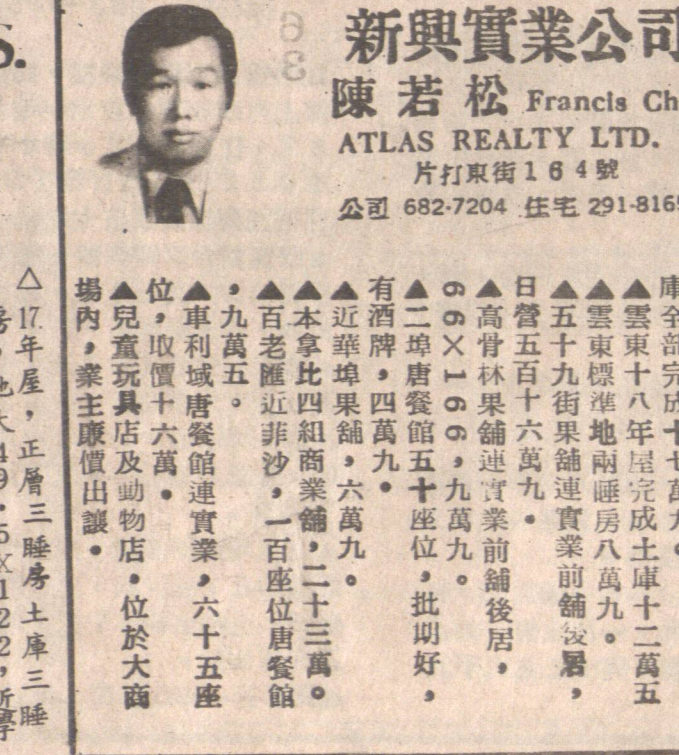 新興實業公司
陳若松 Francis Ch
ATLAS REALTY LTD.
片打東街164號
公司 682-7204 住宅 291-8165
庫全部完成十七萬九。
▲雲東十八年屋完成土庫十二萬五
▲雲東標準地兩睡房八萬九。
▲五十九街果舖連實業前舖後居,
日營五百十六萬九。
▲高骨林果舖連實業前舖後居,
66×166,九萬九。
▲二埠唐餐館五十座位,批期好,
有酒牌,四萬九。
▲近華埠果舖,六萬九。
▲本拿比四組商業舖,二十三萬。
▲百老匯近菲沙,一百座位唐餐館
,九萬五。
▲車利域唐餐館連實業,六十五座
位,取價十六萬。
▲兒童玩具店及動物店,位於大商
場內,業主廉價出讓。
S.
△17年屋,正層三睡房土庫三睡
房,地大49.5×122,